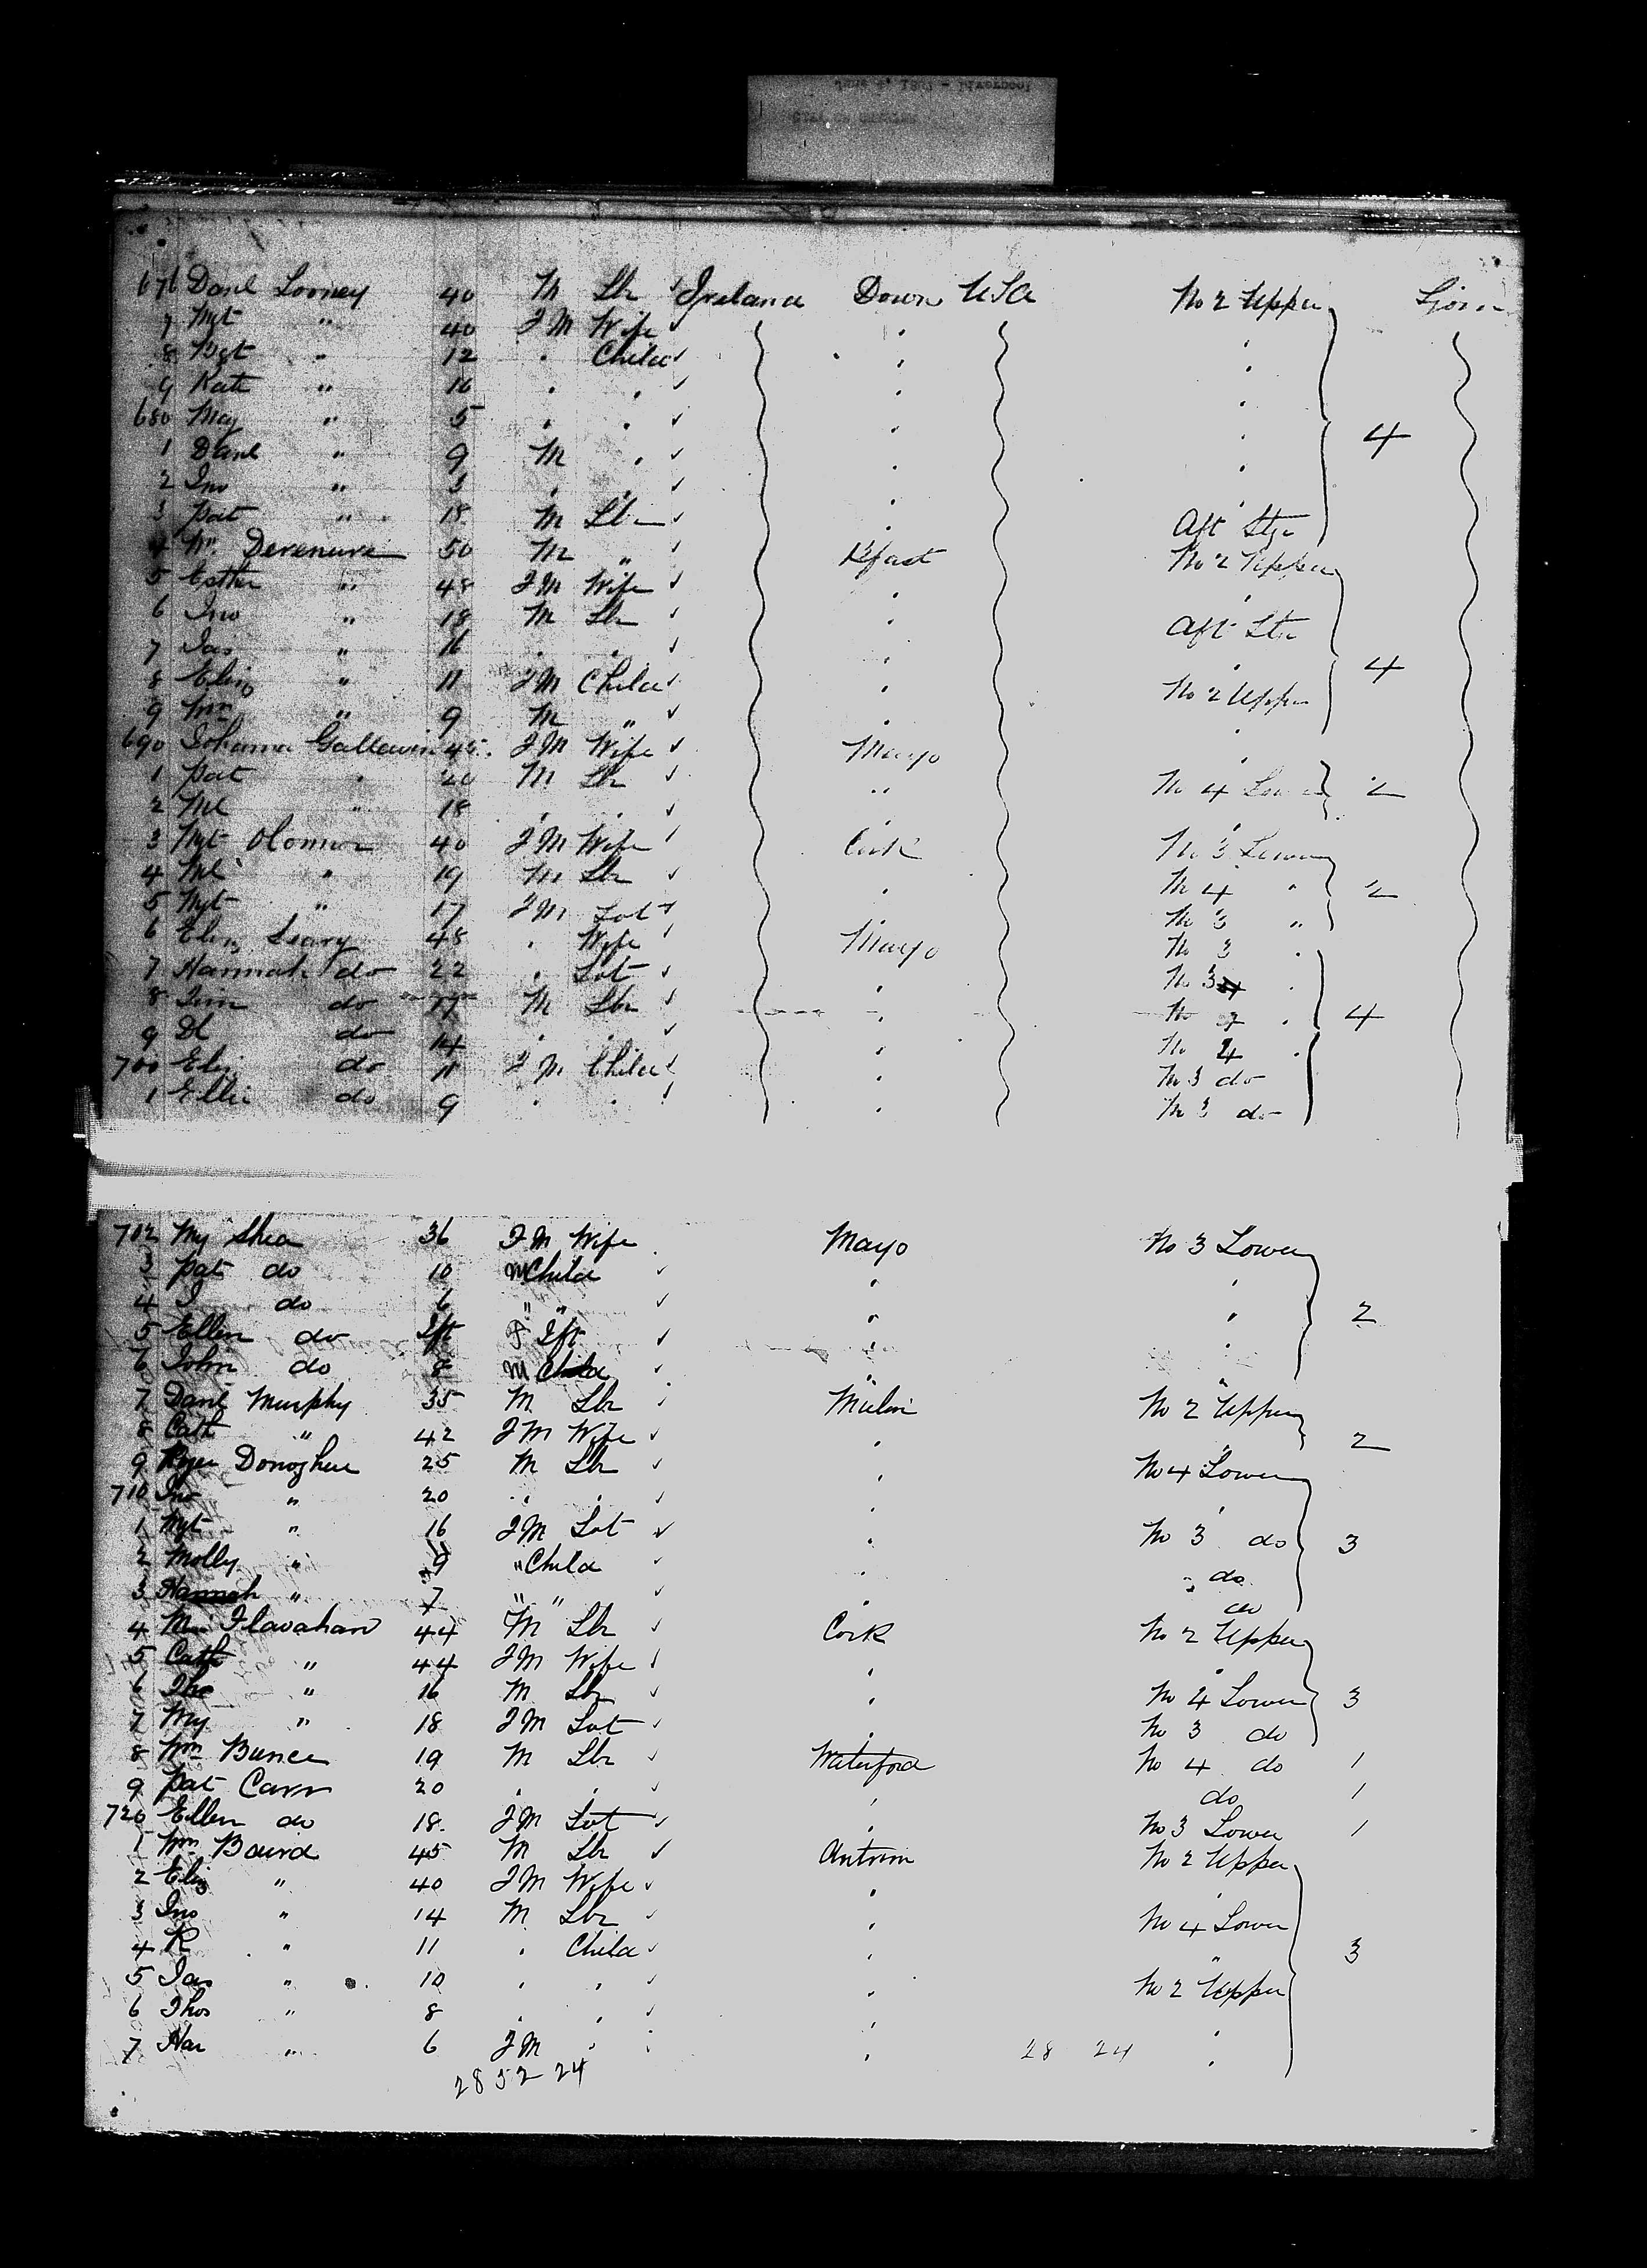 June 5, 1867 - Liverpool
676 Danl Looney 40 M Lbr Ireland Down USA No 2 Upper
7 Mgt " 40 FM Wife
8 " 12 . Child
9 Kate " 10 . .
680 May " 5 . .
1 Danl " 9 M . 4
2 Jno " 3 . .
3 Pat " 18 M Lbr Aft Stge
4 Wm 50 M " Bfast No 2 Upper
5 Esther " 48 FM Wife
6 Jno " 18 M Lbr Aft Stge
7 Jas " 16 . .
8 Eliz " 11 FM Child No 2 Upper 4
9 Wm " 9 M "
690 Johanna 45 FM Wife Mayo
1 Pat " 20 M Lbr " No 4 Lower 2
2 Ml " 18 . .
3 Mgt OConnor 40 FM Wife Cork No 3 Lower
4 Ml " 19 M Lbr . No 4 " 2
5 Mgt " 17 FM No 3 "
6 Eliz Leary 48 . Wife Mayo No 3 .
7 Hannah do 22 . . No 3 .
8 do M Lbr . No . 4
9 Dl do 14 . . . No 4 .
700 Eliz do 11 FM Child . No 3 do
1 Ellie do 9 . . . No 3 do
702 My Shea 36 FM Wife Mayo No 3 Lower
3 Pat do 10 M Child
4 J do 6 " " 2
5 Ellen do Ift F Ift
6 John do 8 M Child
7 Danl Murphy 35 M Lbr No 2 Upper
8 Cath " 42 FM Wife . 2
9 Roger Donoghue 25 M Lbr . No 4 Lower
710 Jno " 20 . .
1 Mgt " 16 FM . No 3 do 3
2 Molly " 9 " Child . " do
3 Hannah " 7 " " do
4 Flavahan 44 M Lbr Cork No 2 Upper
5 Cath " 44 FM Wife
6 Tho " 16 M Lbr . No 4 Lower 3
7 My " 18 FM . No 3 do
8 Wm Bunce 19 M Lbr Waterford No 4 do 1
9 Pat Carr 20 . . . do 1
720 Ellen do 18 FM . No 3 Lower 1
1 Wm Baird 45 M Lbr Antrim No 2 Upper
2 Eliz " 40 FM Wife
3 Jno " 14 M Lbr . No 4 Lower
4 R " 11 . Child . " 3
5 Jas " 10 . . . No 2 Upper
6 Thos " 8 . .
7 Har " 6 FM . 28 24
28 52 24